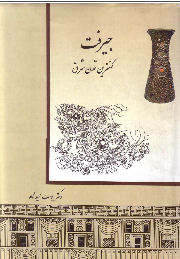 جیرفت
کهنترین تمدن شرق
دکتر یوسف مجیدزاده